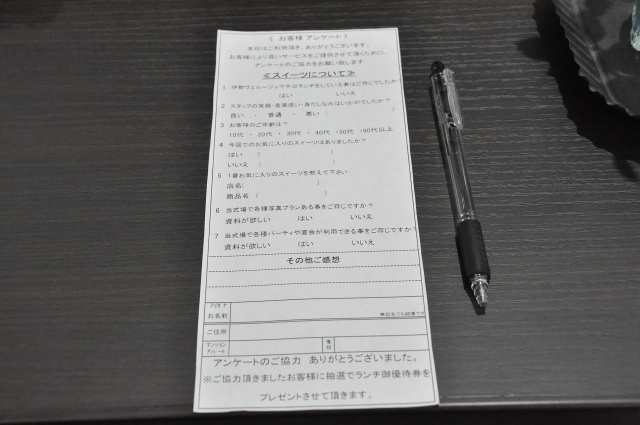 《 お客様 アンケート 》
本日はご利用頂き、ありがとうございます。
お客様により良いサービスをご提供させて頂くために、
アンケートのご協力をお願い致します
≪スイーツについて≫
1 伊勢ヴェルージュで平日ランチをしている事はご存じでしたか
はい いいえ
2 スタッフの笑顔・言葉遣い・身だしなみはいかがでしたか?
良い ・ 普通 ・ 悪い ( )
3 お客様のご年齢は?
10代 ・ 20代 ・ 30代 ・ 40代 ・50代 ・60代以上
4 今回でのお気に入りのスイーツはありましたか?
はい ( )
いいえ ( )
5 1番お気に入りのスイーツを教えて下さい
店名( )
商品名 ( )
6 当式場で各種写真プランある事をご存じですか?
資料が欲しい はい いいえ
7 当式場で各種パーティや宴会が利用できる事をご存じですか
資料が欲しい はい いいえ
その他ご感想
フリガナ
お名前 無記名でも結構です
ご住所
マンション
アパート 電話
アンケートのご協力 ありがとうございました。
※ご協力頂きましたお客様に抽選でランチ御優待券を
プレゼントさせて頂きます。